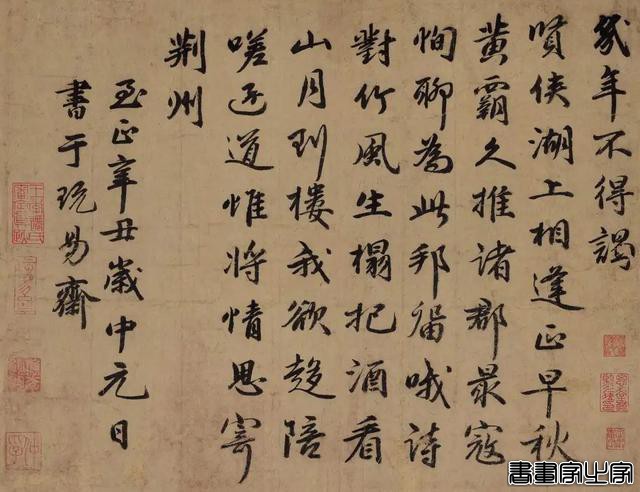 幾年不得謁
賢侯湖上相逢正早秋
黄霸久推諸郡最寇
恂聊為此邦留哦詩
對竹風生榻把酒看
山月到樓我欲趍陪
嗟逺道惟将情思寄
荆州
至正辛丑歲中元日
書于玩易齋
書畫家之家